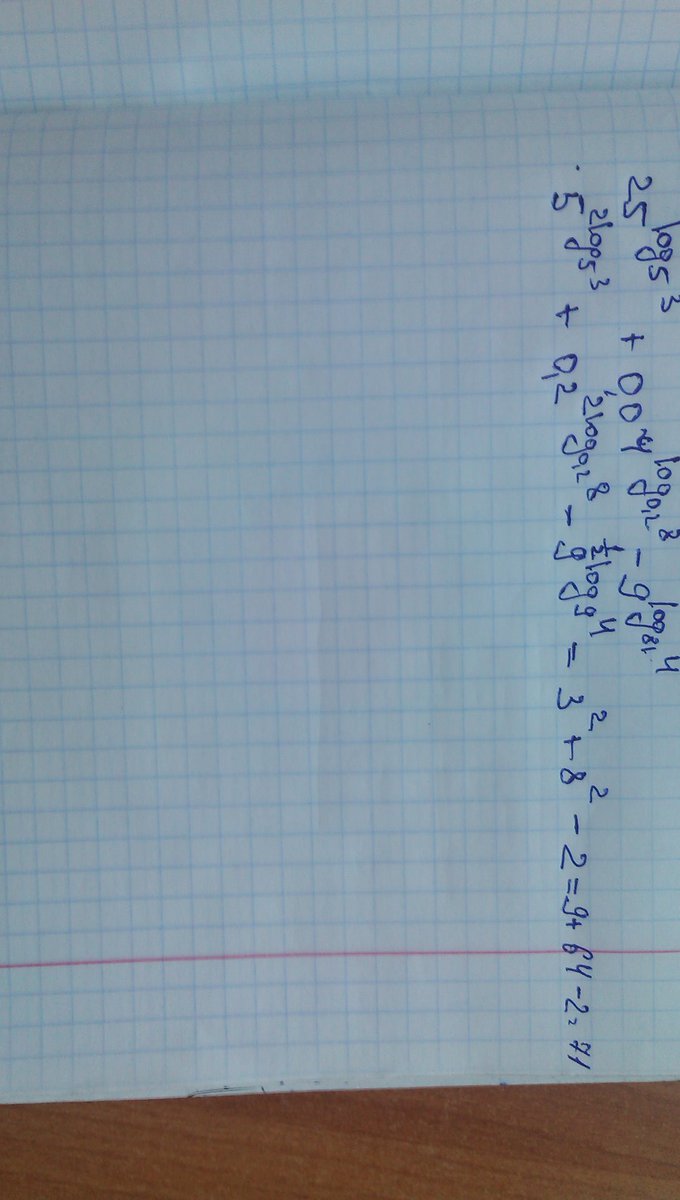 25^{log_5 3} + 0,04^{log_{0,2} 8} - 9^{log_{81} 4}
5^{2log_5 3} + 0,2^{2log_{0,2} 8} - 9^{\frac{1}{2}log_9 4} = 3^2 + 8^2 - 2 = 9 + 64 - 2 = 71